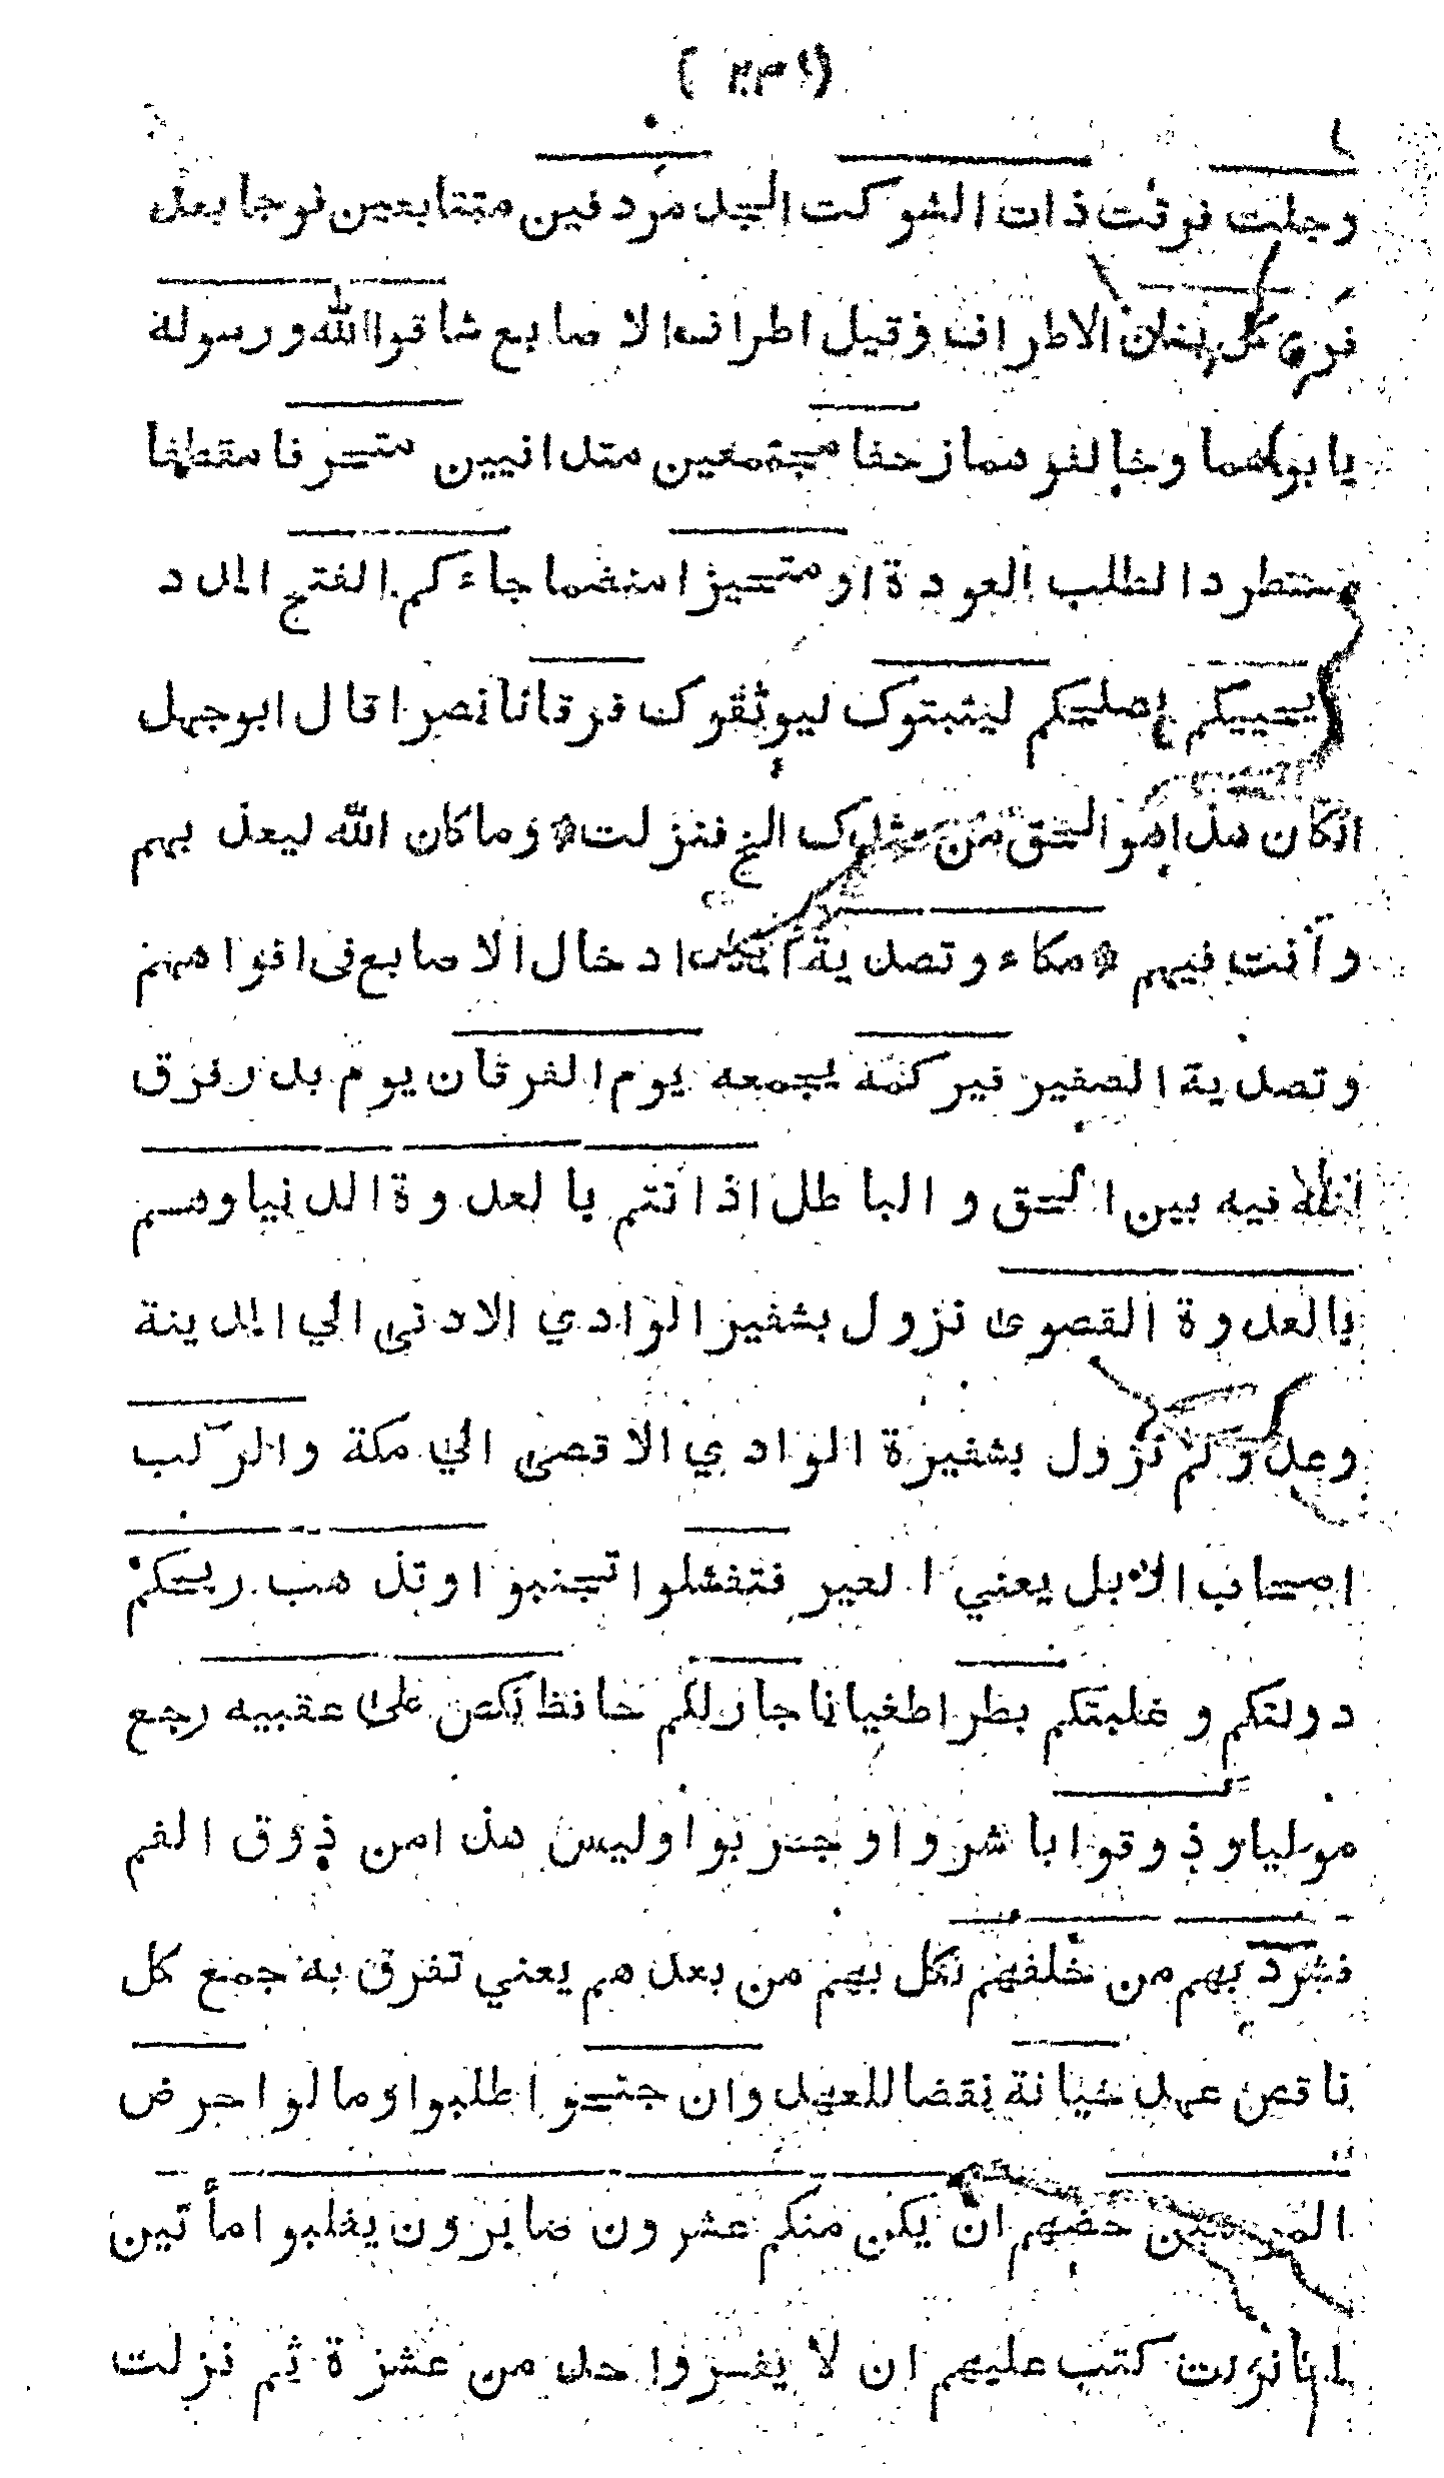 (٢٣١)
وجلت فرقت ذات الشوكت الحد مردفين متتابعين فوجا بعد
فوج كل بنان الاطراف وقيل اطرافه الاصابع شاقوا الله ورسوله
جانبوهما وخالفوهما زحفا مجتمعين متدانيين متحرفا منقطعا
مستطردا لطلب العودة او متحيزا منضما جاءكم الفتح المدد
يحييكم يصلحكم ليثبتوك ليوثقوك فرقانا نصرا قال ابو جهل
ان كان هذا هو الحق من عندك الخ فنزلت * وما كان الله ليعذ بهم
وانت فيهم * مكاء وتصدية المكاء ادخال الاصابع فى افواههم
وتصدية الصفير فيركمه يجمعه يوم الفرقان يوم بدر فرق
الله فيه بين الحق و الباطل اذ انتم بالعدوة الدنيا وهم
بالعدوة القصوى نزول بشفير الوادي الادنى الي المدينة
وعدوكم نزول بشفيرة الوادي الاقصى الي مكة والركب
اصحاب الابل يعني العير فتفشلوا تجنبوا وتذهب ريحكم
دولتكم و غلبتكم بطرا طغيانا جار لكم حافظ نكص على عقبيه رجع
موليا وذوقوا باشروا وجربوا وليس هذا من ذوق الفم
فشرد بهم من خلفهم نكل بهم من بعدهم يعني تفرق به جمع كل
ناقض عهد خيانة نقضا للعهد وان جنحوا اطلبوا ومالوا حرض
المومنين حضهم ان يكن منكم عشرون صابرون يغلبوا مأتين
لما نزلت كتب عليهم ان لا يفر واحد من عشرة ثم نزلت